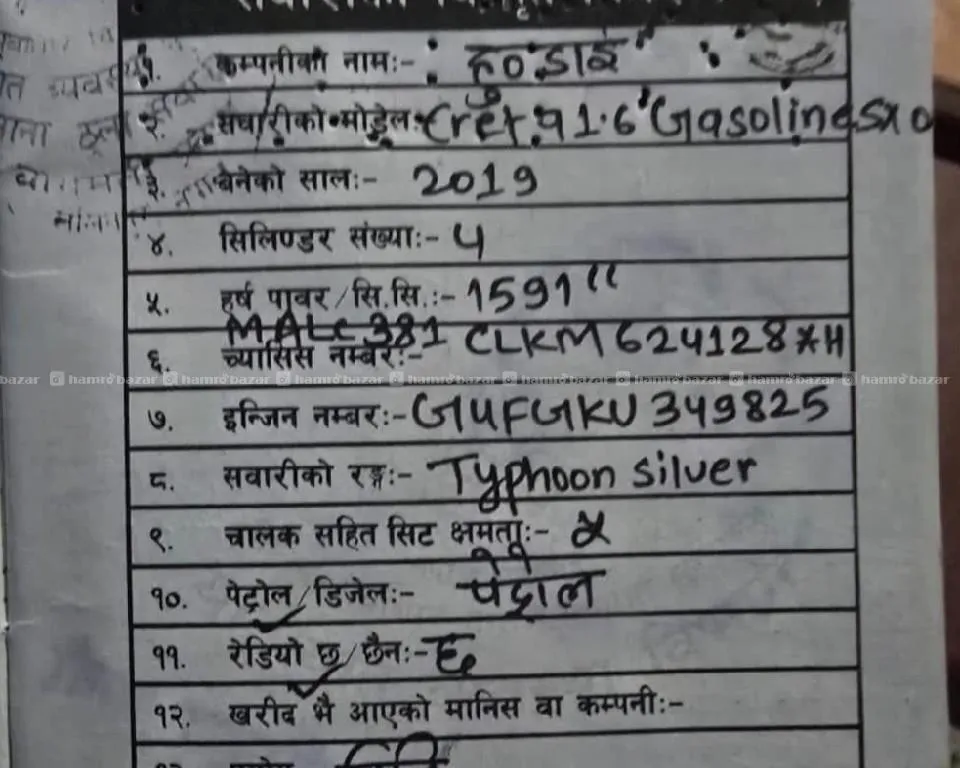 १. कम्पनीको नाम:- हुण्डाई
२. सवारीको मोडेल:- Creta 1.6 Gasoline SX O
३. बनेको साल:- 2019
४. सिलिण्डर संख्या:- ५
५. हर्ष पावर/सि.सि.:- 1591 cc
MALC381 CLKM624128*H
६. च्यासिस नम्बर:-
hamrobazar hamrobazar hamrobazar hamrobazar hamrobazar hamrobazar
७. इन्जिन नम्बर:- G4FGKU349825
८. सवारीको रङ्ग:- Typhoon silver
९. चालक सहित सिट क्षमता:- ५
१०. पेट्रोल/डिजेल:- पेट्रोल
११. रेडियो छ/छैन:- छ
१२. खरीद भै आएको मानिस वा कम्पनी:-